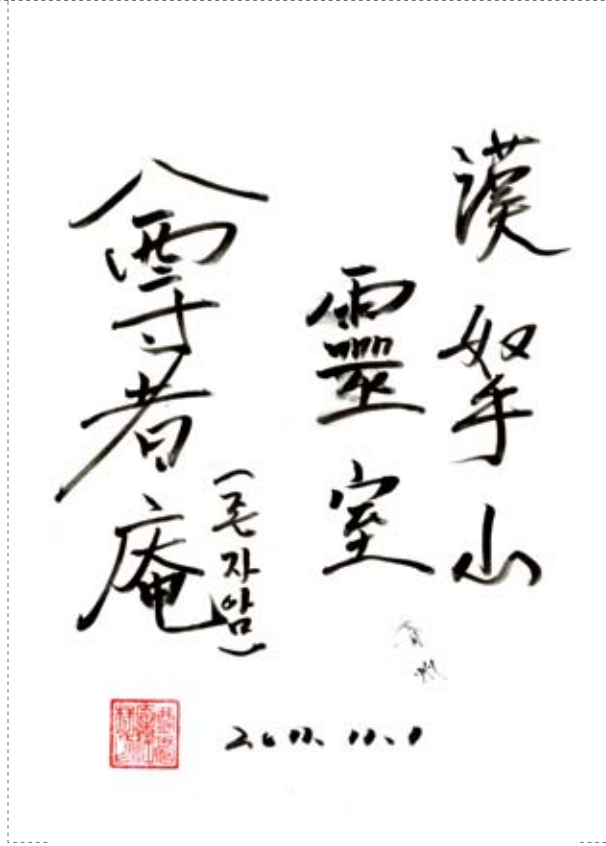 漢拏山
靈室
尊者庵
(존자암)
2011. 11. 1